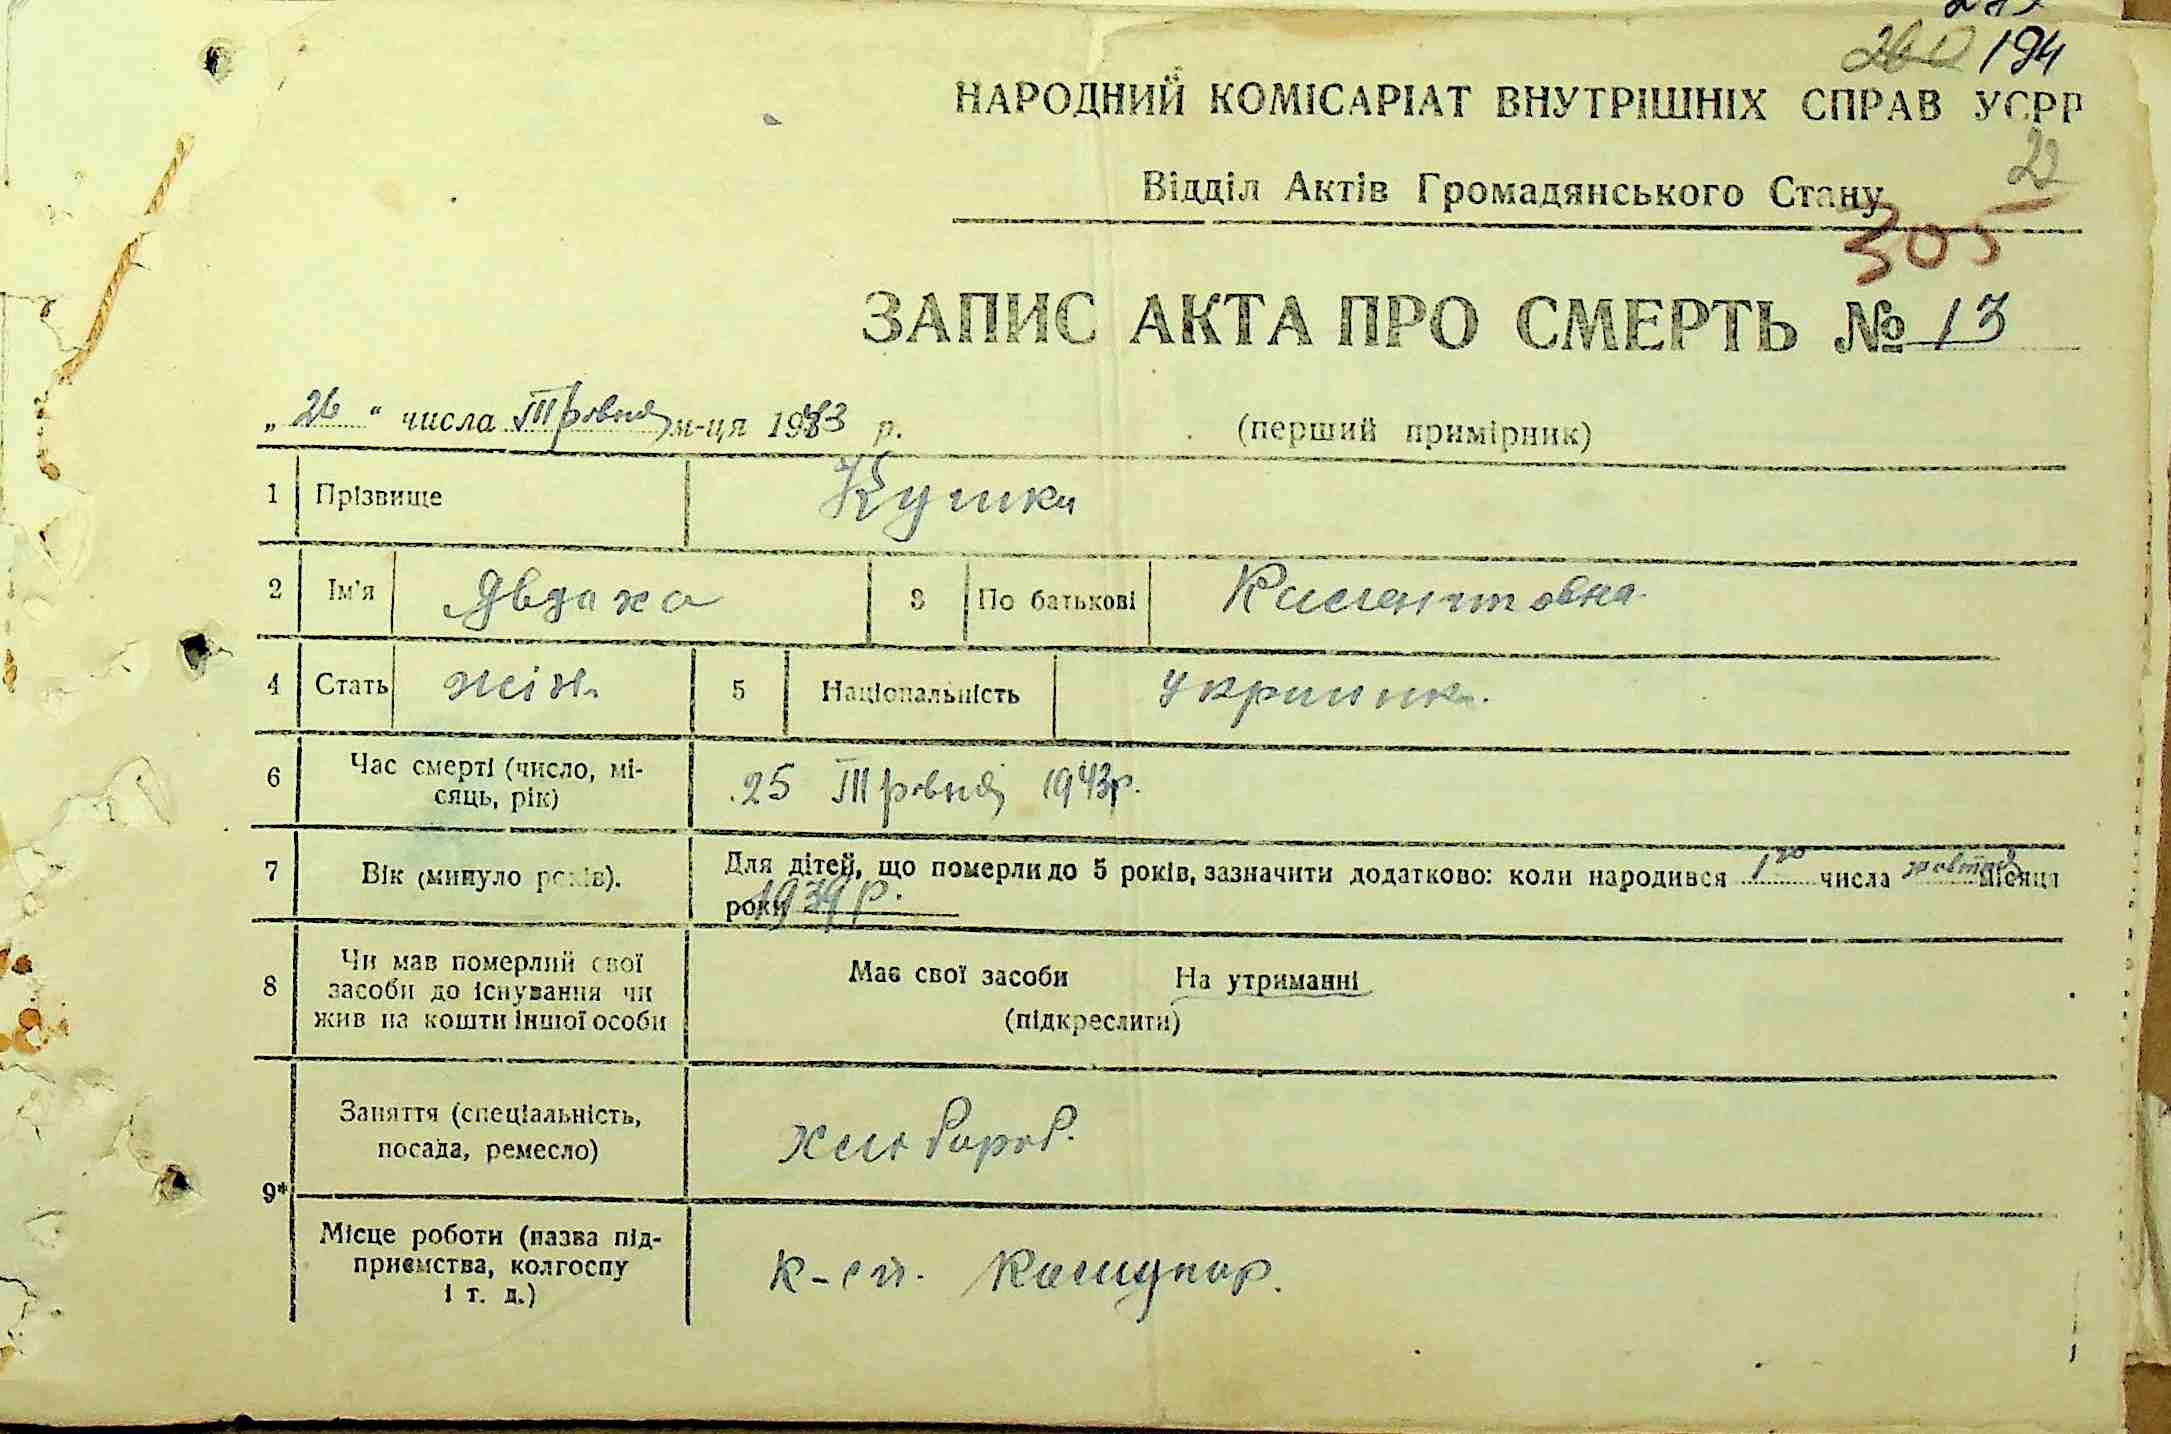 194
НАРОДНИЙ КОМІСАРІАТ ВНУТРІШНІХ СПРАВ УСРР
22
Відділ Актів Громадянського Стану
305
ЗАПИС АКТА ПРО СМЕРТЬ № 13
„ 26 “ числа Травня м-ця 1943 р. (перший примірник)
1 Прізвище
2 Ім'я Явдаха 3 По батькові
4 Стать жін. 5 Національність україінка.
6 Час смерті (число, мі-
сяць, рік) 25 Травня 1943р.
7 Вік (минуло років). Для дітей, що померли до 5 років, зазначити додатково: коли народився 1го числа жовтня місяця
роки 1939 р.
8 Чи мав померлий свої
засоби до існування чи
жив на кошти іншої особи
Має свої засоби На утриманні
(підкреслити)
9*
Заняття (спеціальність,
посада, ремесло) хлібороб.
Місце роботи (назва під-
приємства, колгоспу
і т. д.)